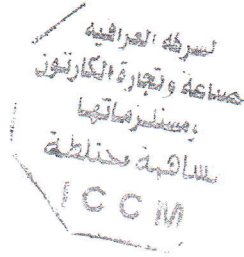 العراقية
صناعة وتجارة الكارتون
ومستلزماتها
مساهمة مختلطة
ICCM